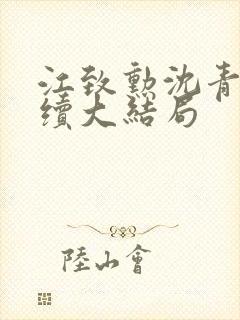 江致勳沈青
續大結局
陸山會